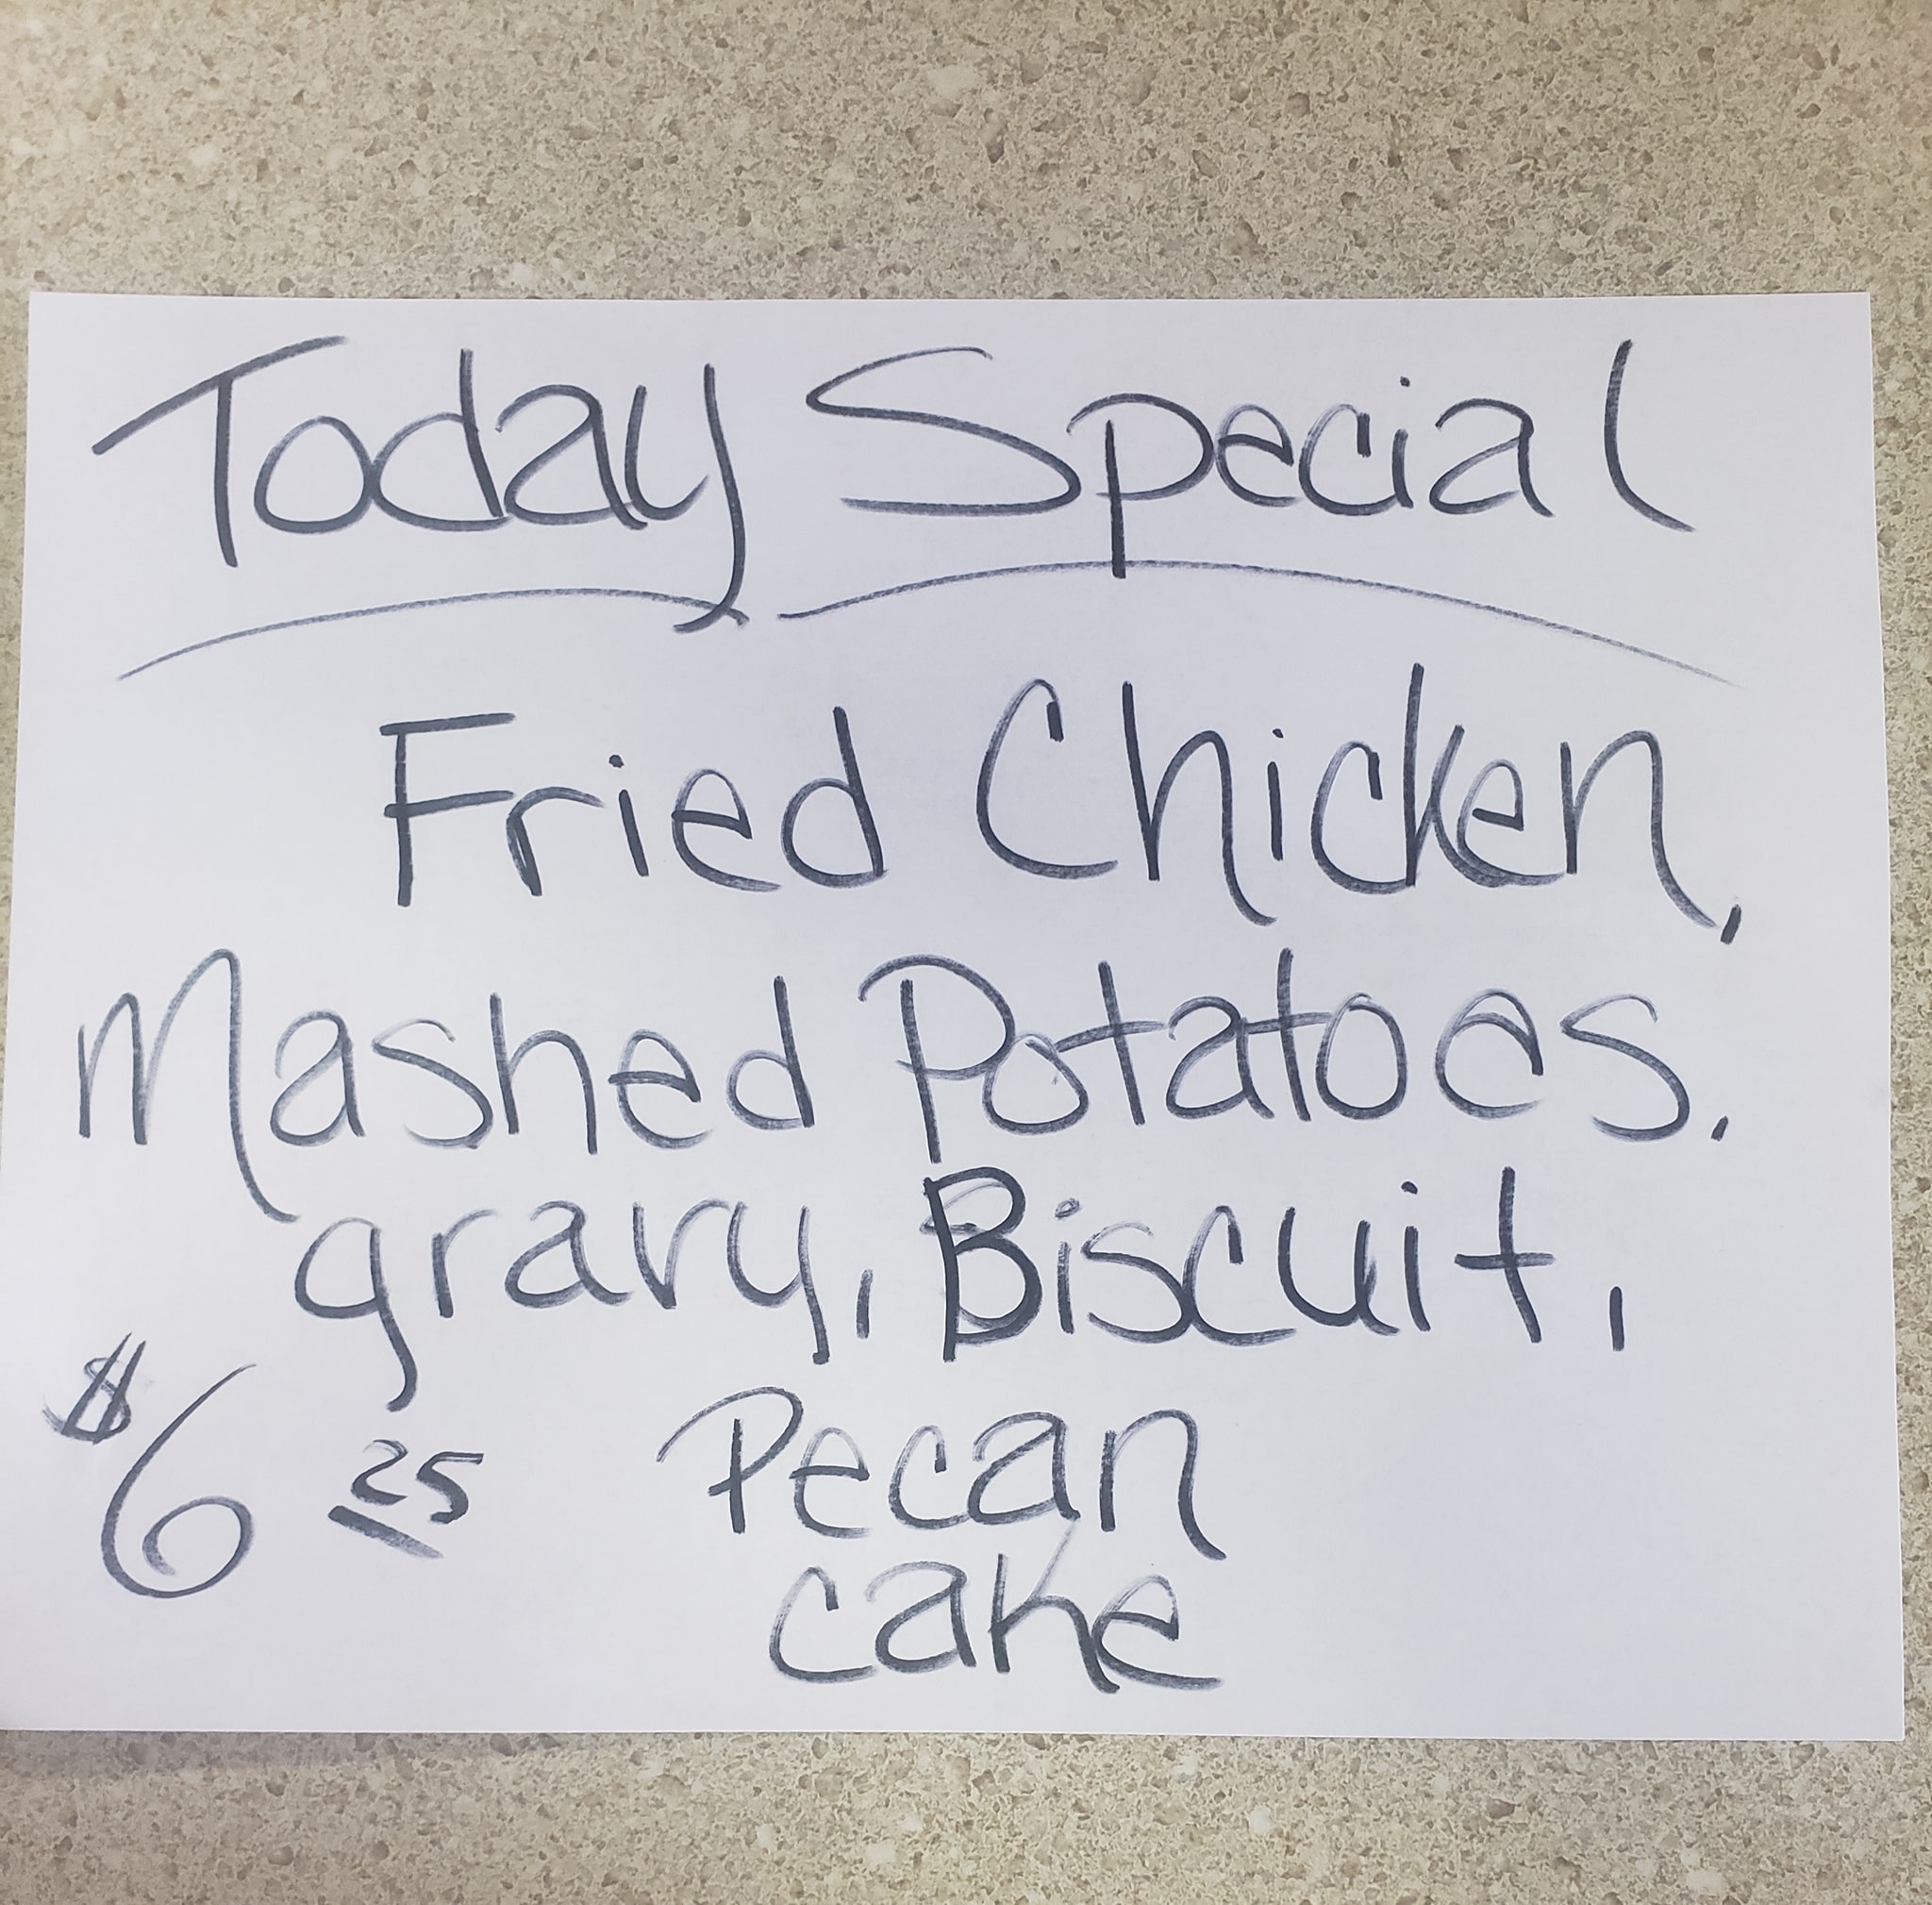 Today Special
Fried Chicken,
Mashed Potatoes.
gravy, Biscuit,
$6 25 Pecan
cake